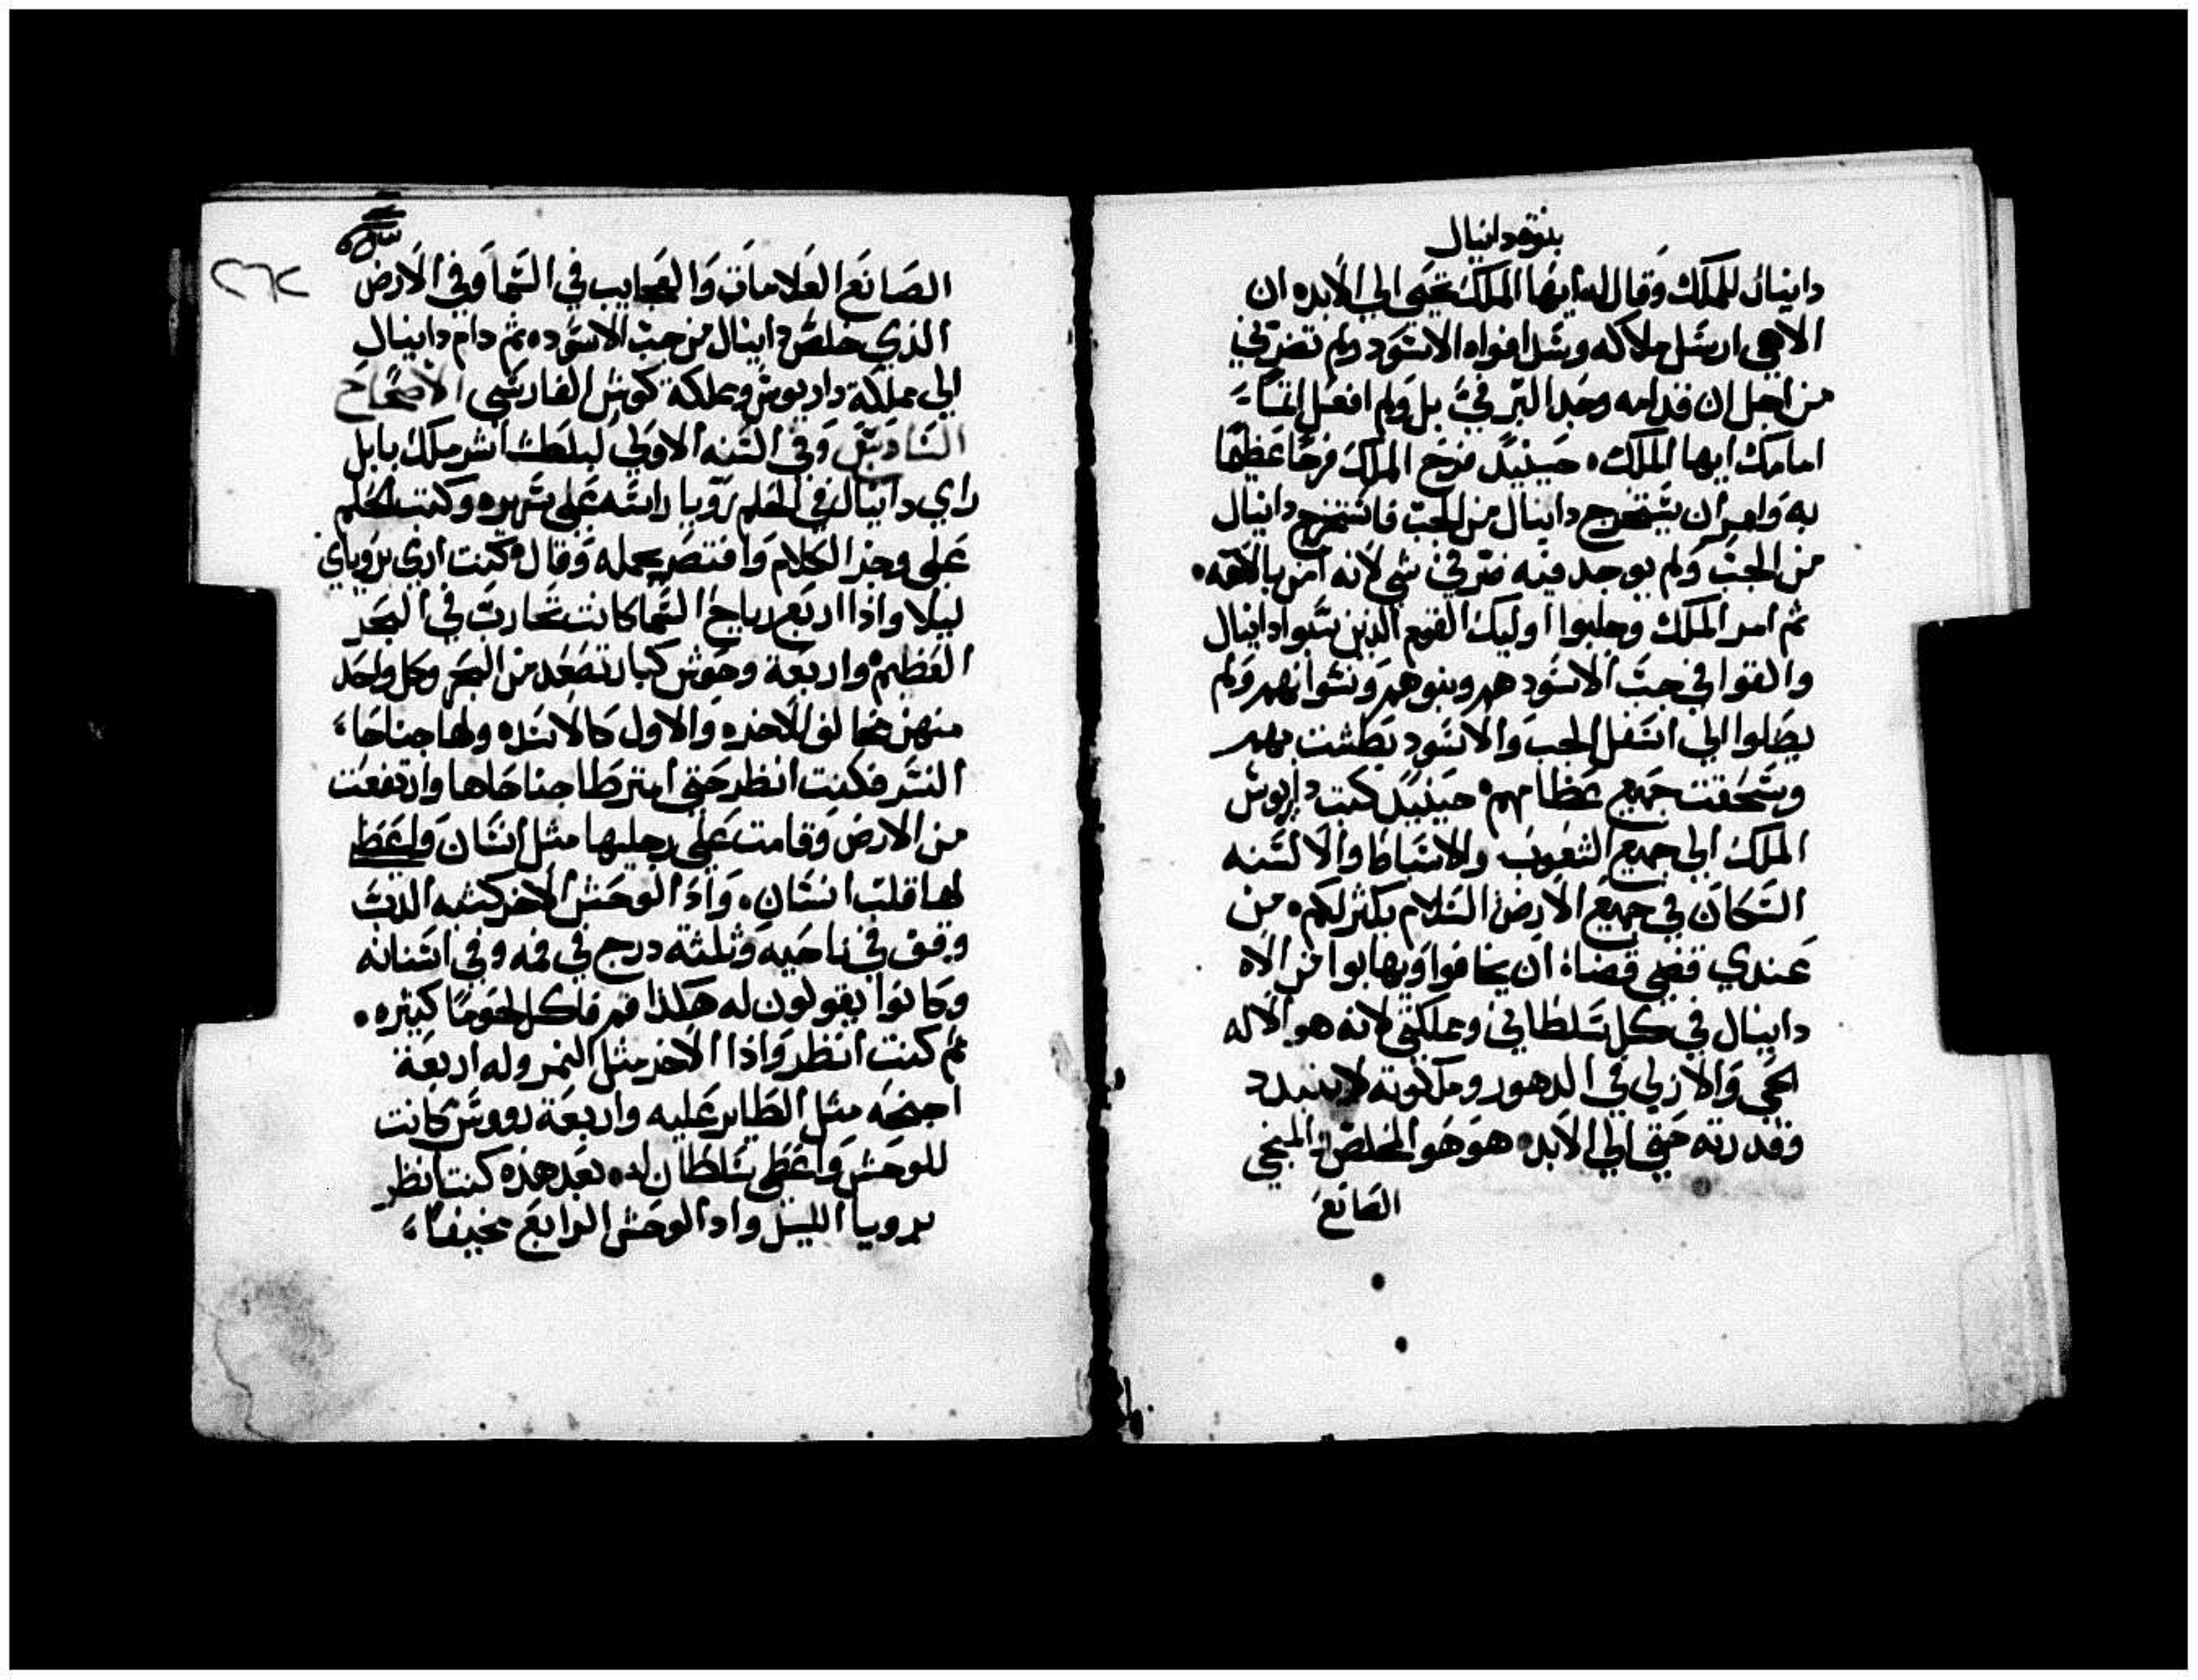 بنوة دانيال
دانيال للملك وقال له ايها الملك تحيي الي الابد ان
الاهي ارسل ملاكه وسد افواه الاسود ولم تضرني
من اجل ان قدامه وجد البر فيَّ بل ولم افعل اثمًا
امامك ايها الملك. حينيدٍ فرح الملك فرحًا عظيمًا
به وامر ان يستخرج دانيال من الجب فاستخرج دانيال
من الجب ولم يوجد فيه ضرر في شي لانه امن بالاهه.
ثم امر الملك وجلبوا اوليك القوم الذين سبوا دانيال
والقوا في جب الاسود هم وبنوهم ونسوانهم ولم
يصلوا الي اسفل الجب والاسود بطشت بهم
وسحقت جميع عظامهم. حينيدٍ كتب داريوس
الملك الي جميع الشعوب والاسباط والالسنه
السكان في جميع الارض السلام يكثر لكم. من
عندي قضي قضاة ان يخافوا ويهابوا من الاه
دانيال في كل سلطاني ومملكتي لانه هو الاله
الحي والازلي في الدهور وملكوته لا تتبدد
وقدرته حتي الي الابد. هو هو المخلص المنجي
الصانع
٢٦٢
الصانع العلامات والعجايب في السما وفي الارض
الذي خلص دانيال من جب الاسود. ثم دام دانيال
الي مملكة داريوس ومملكة كوش الفارسي الاصحاح
السادس وفي السنه الاولي لبلطشاشر ملك بابل
راي دانيال في الحلم رويا راسه علي سريره وكتب الحلم
علي وجيز الكلام واختصر بجمله وقال كنت اري برؤياي
ليلا واذا اربع رياح السما كانت تحارب في البحر
العظيم واربعة وحوش كبار تصعد من البحر وكل واحد
منهن مخالف للاخر. والاول كالاسد. ولها جناحا
النسر فكنت انظر حتي امترطا جناحاها وارتفعت
من الارض وقامت علي رجليها مثل انسان واعطي
لها قلب انسان. واذ الوحش الاخر كشبه الدب
وقف في ناحيه وثلثة درج في فمه وفي اسنانه
وكانوا يقولون له هكذا قم فاكل لحومًا كثيره.
ثم كنت انظر واذا الاخر مثل النمر وله اربعة
اجنحه مثل الطاير عليه واربعة رووس كانت
للوحش واعطي سلطان له. بعد هذه كنت انظر
برويا الليل واذ الوحش الرابع مخيفًا